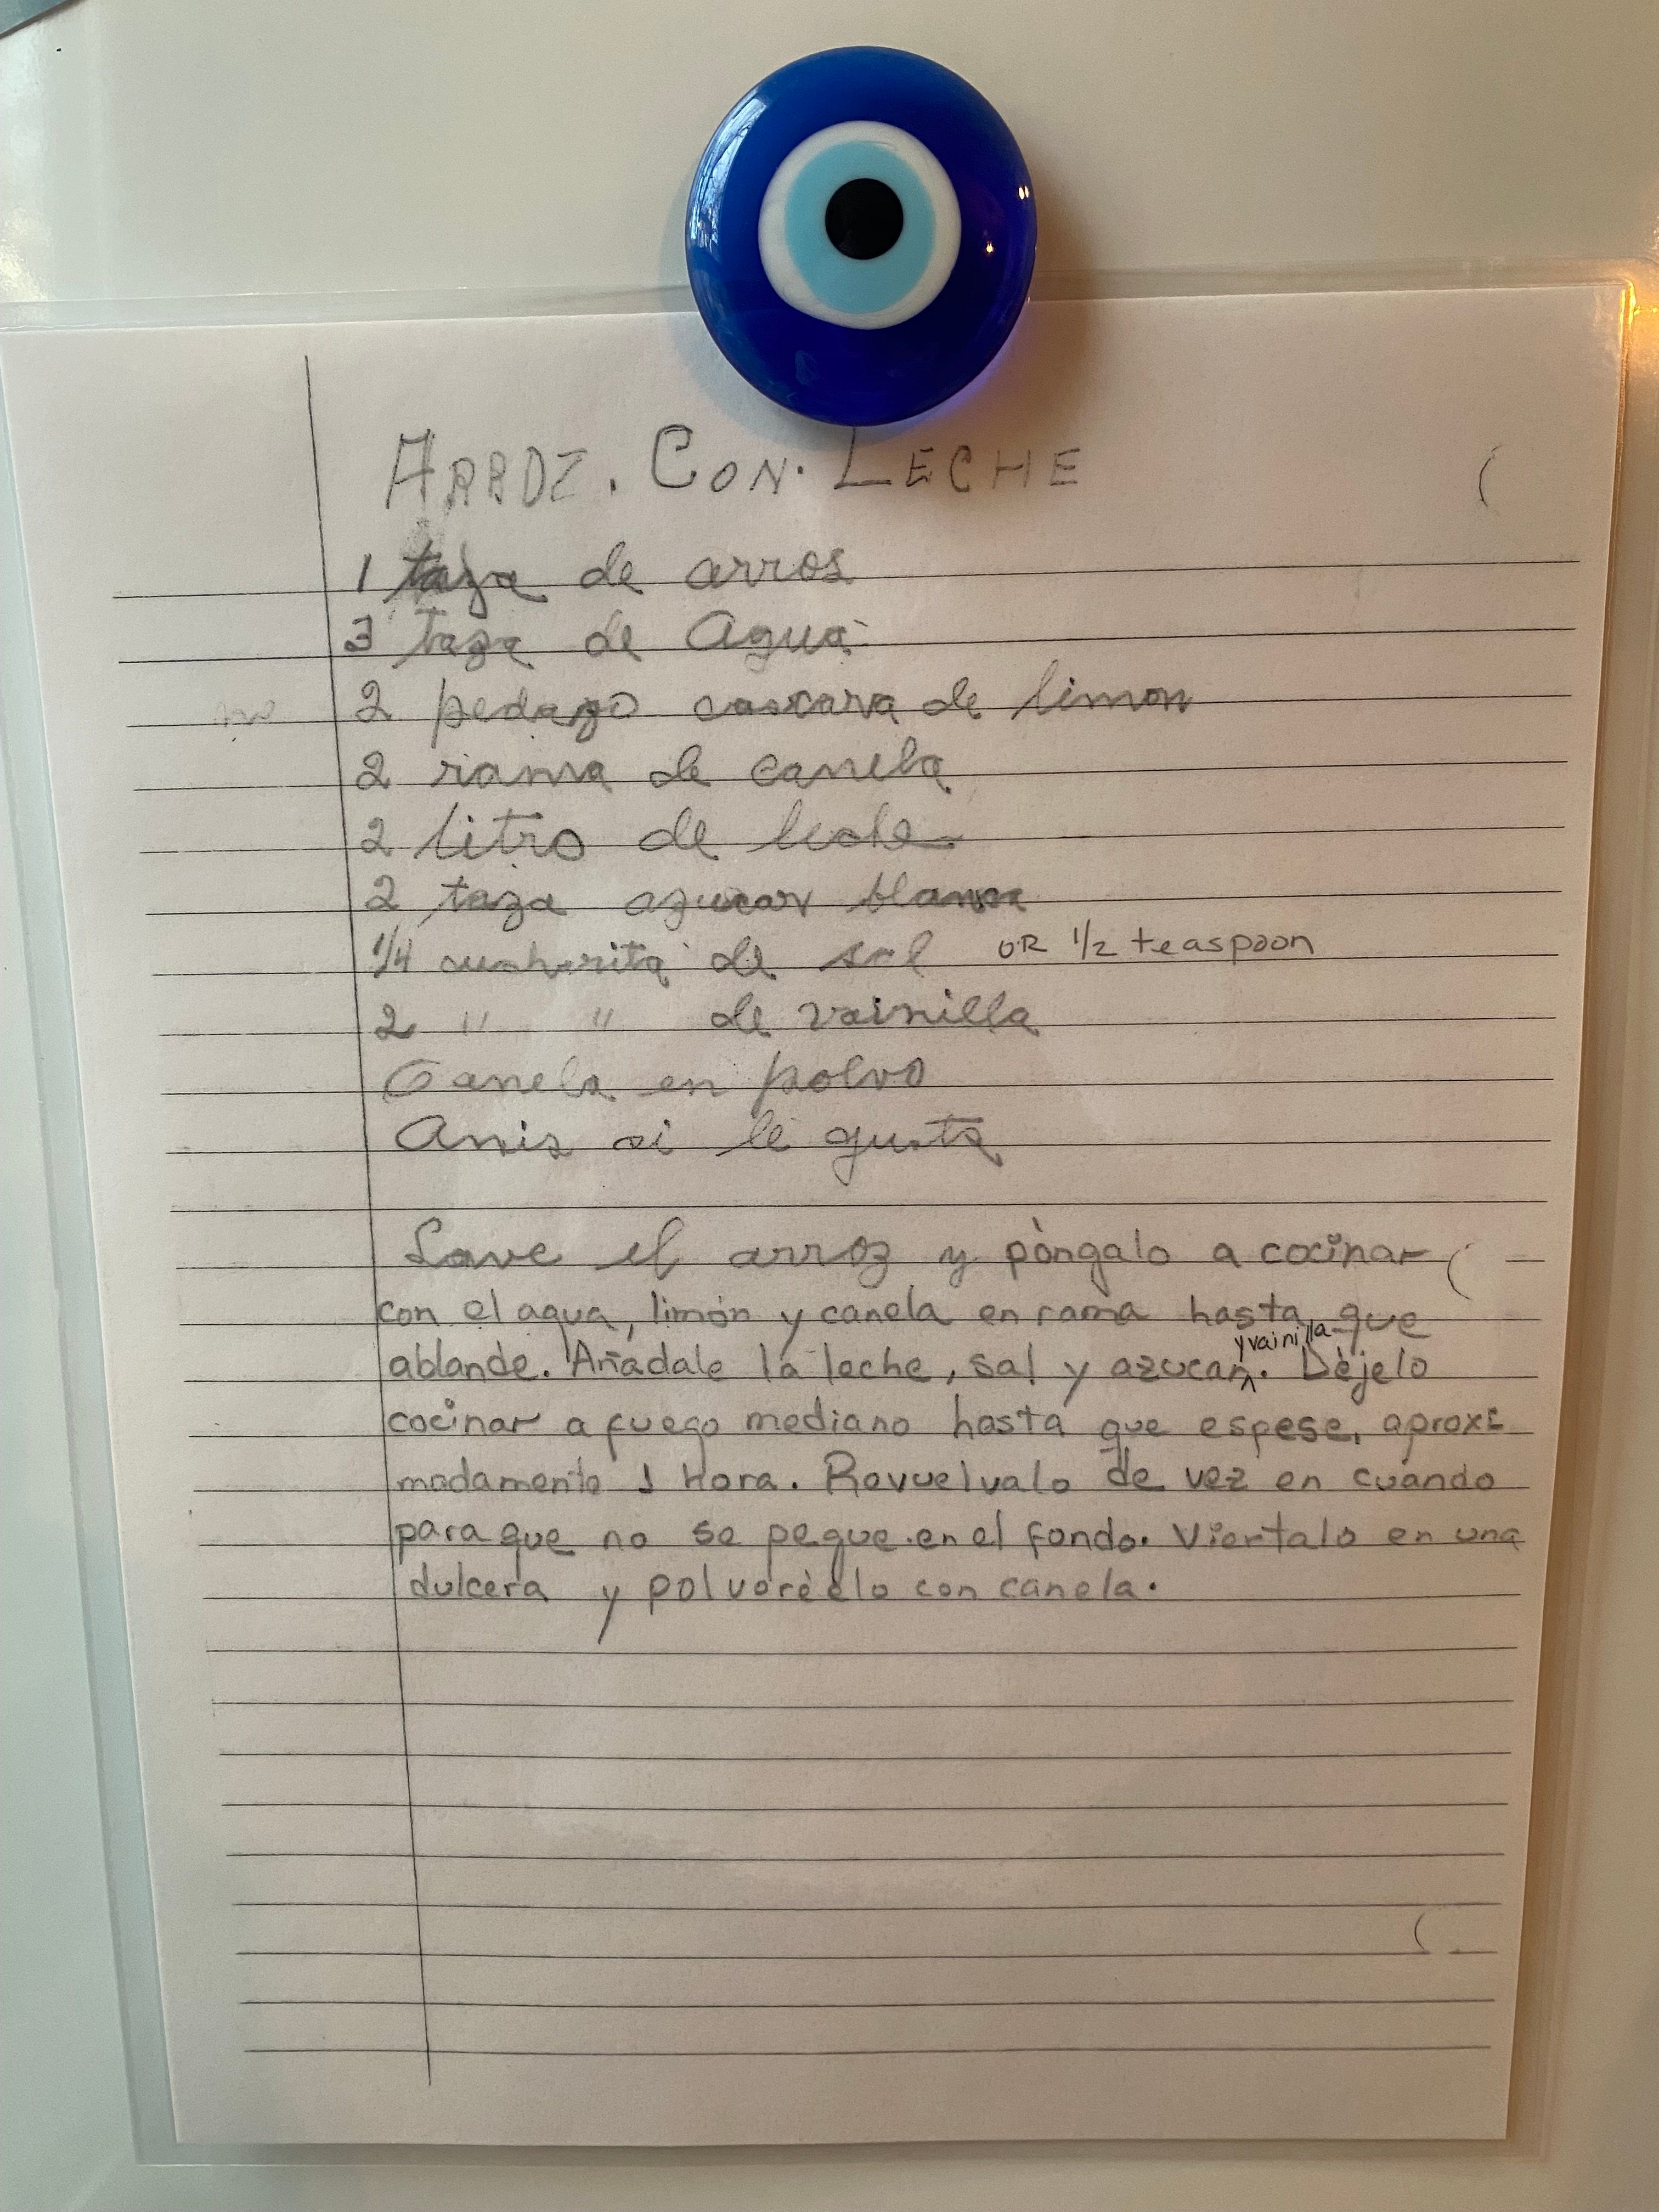 ARROZ. CON. LECHE
1 taza de arros
3 taza de Agua
2 pedazo cascara de limon
2 rama de canela
2 litro de leche
2 taza azucar blanca
1/4 cucharita de sal OR 1/2 teaspoon
2 " " de vainilla
Canela en polvo
Anis si le gusta
Lave el arroz y pòngalo a cocinar
con el agua, limón y canela en rama hasta que
y vainilla
ablande. Añadale la leche, sal y azucar. Dèjelo
cocinar a fuego mediano hasta que espese, aproxi
madamente 1 hora. Revuelvalo de vez en cuando
para que no se pegue en el fondo. Viertalo en una
dulcera y polvorèelo con canela.